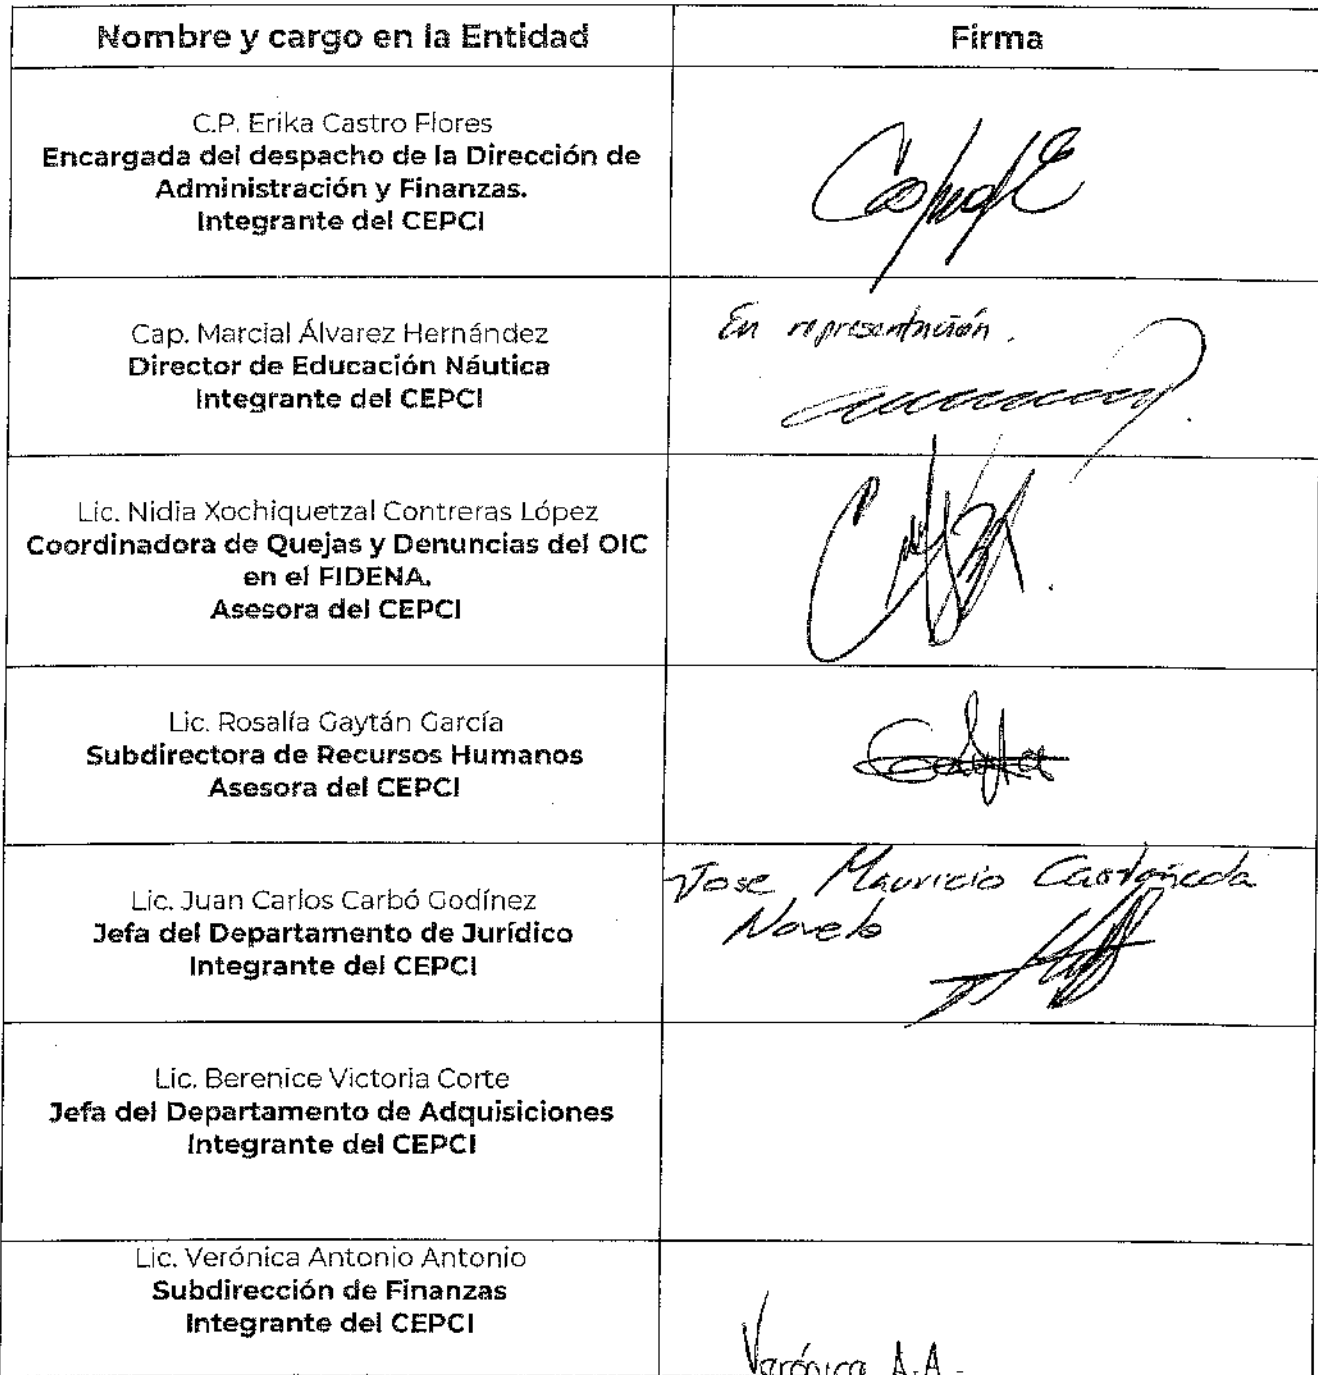 Nombre y cargo en la Entidad
Firma
C.P. Erika Castro Flores
Encargada del despacho de la Dirección de
Administración y Finanzas.
Integrante del CEPCI
Cap. Marcial Álvarez Hernández
Director de Educación Náutica
Integrante del CEPCI
En representación.
Lic. Nidia Xochiquetzal Contreras López
Coordinadora de Quejas y Denuncias del OIC
en el FIDENA.
Asesora del CEPCI
Lic. Rosalía Gaytán García
Subdirectora de Recursos Humanos
Asesora del CEPCI
Lic. Juan Carlos Carbó Godínez
Jefa del Departamento de Jurídico
Integrante del CEPCI
Jose Mauricio Castañeda
Novelo
Lic. Berenice Victoria Corte
Jefa del Departamento de Adquisiciones
Integrante del CEPCI
Lic. Verónica Antonio Antonio
Subdirección de Finanzas
Integrante del CEPCI
Verónica A.A.